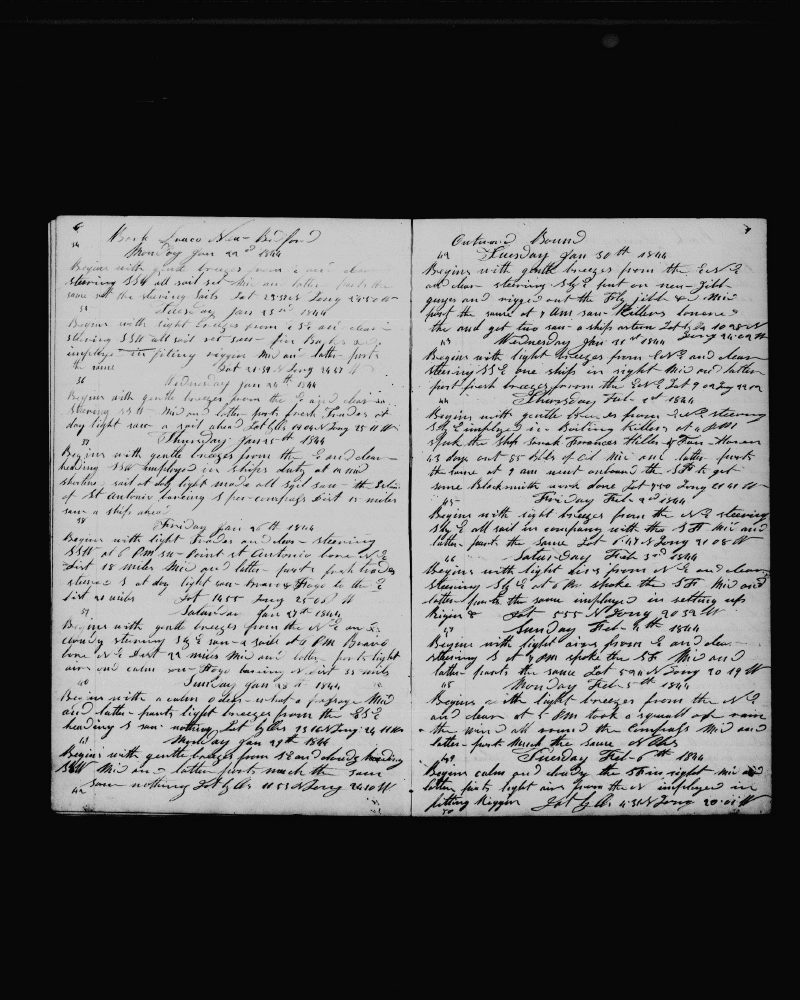 6
Bark Draco New Bedford
34
Monday Jan 22nd 1844
Begins with gentle breezes from E and clear
steering SSW all sail set Mid and latter parts the
same set the stearing sails Lat Long 24 50 W
35
Tuesday Jan 23rd 1844
Begins with light breezes from E and clear
steering SSW all sail set saw five
employed in rigging Mid and latter parts
the same Lat 21 39 N Long 24 47 W
36
Wednesday Jan 24th 1844
Begins with gentle breezes from the E and clear
steering SSW Mid and latter parts fresh Trades at
day light saw a sail ahead Lat by Obs Long 25 11 W
37
Thursday Jan 25th 1844
Begins with gentle breezes from the E and clear
heading SSW employed in ships duty at
sail at day light made all sail saw the
of St Antonio bearing S per compass Dist 15 miles
saw a ship ahead
38
Friday Jan 26th 1844
Begins with light Trades and clear steering
SSW at 6 PM Point of Antonio bore N E
Dist 18 miles Mid and latter parts fresh trades
steered S at day light saw Bravo & Fogo to the E
Dist 20 miles Lat 14 55 Long 25 05 W
39
Saturday Jan 27th 1844
Begins with gentle breezes from the N E and
cloudy steering S by E saw a sail at 4 PM Bravo
bore N E Dist 22 miles Mid and latter parts light
airs and calm Fogo bearing N Dist 35 miles
40
Sunday Jan 28th 1844
Begins with a calm a passage Mid
and latter parts light breezes from the ESE
heading S saw nothing Lat by Obs 13 16 N Long 24 11 W
41
Monday Jan 29th 1844
Begins with gentle breezes from SE and cloudy heading
SSW Mid and latter parts much the same
saw nothing Lat by Obs 11 53 N Long 24 10 W
42
7
Outward Bound
42
Tuesday Jan 30th 1844
Begins with gentle breezes from the E N E
and clear steering S by E put on new Jibb
guys and rigged out the Fly jibb & Mid
part the same at 7 AM saw Killers lowered
the and got two saw a ship astern Lat by Ob 10 28 N
Long 24 02 W
43
Wednesday Jan 31st 1844
Begins with light breezes from E N E and clear
steering SSE one ship in sight Mid and latter
part fresh breezes from the E N E Lat 9 02 Long 22 02
44
Thursday Feb 1st 1844
Begins with gentle breezes from E N E steering
S by E employed in Boiling Killers at 4 PM
spoke the Ship Sarah Frances Hiller of Fair Haven
43 days out 85 Blls of Oil Mid and latter parts
the same at 9 am went onboard the S F to get
some Blacksmith work done Lat 7 50 Long 21 41 W
45
Friday Feb 2nd 1844
Begins with light breezes from the N E steering
S by E all sail in company with the S F Mid and
latter parts the same Lat 6 47 N Long 21 08 W
46
Saturday Feb 3rd 1844
Begins with light airs from N E and clear
steering S by E at 6 PM spoke the S F Mid and
latter parts the same employed in setting up
Rigin & Lat 5 55 N Long 20 52 W
47
Sunday Feb 4th 1844
Begins with light airs from E and clear
steering S at 7 PM spoke the S F Mid and
latter parts the same Lat 5 22 N Long 20 19 W
48
Monday Feb 5th 1844
Begins with light breezes from the N E
and clear at 5 PM took a squall of rain
the wind all round the Compass Mid and
latter part Much the same N Obs
49
Tuesday Feb 6th 1844
Begins calm and cloudy the S F in sight mid and
latter parts light airs from the N employed in
fitting Riggin Lat by Obs 4 31 N Long 20 01 W
50